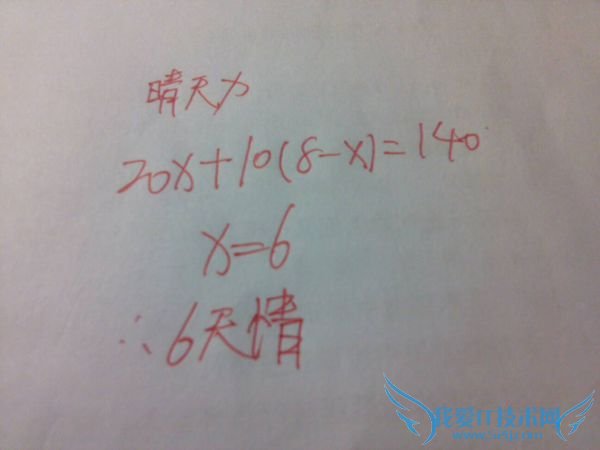 晴天x
20x+10(8-x)=140
x=6
∴6天情
我爱IT技术网